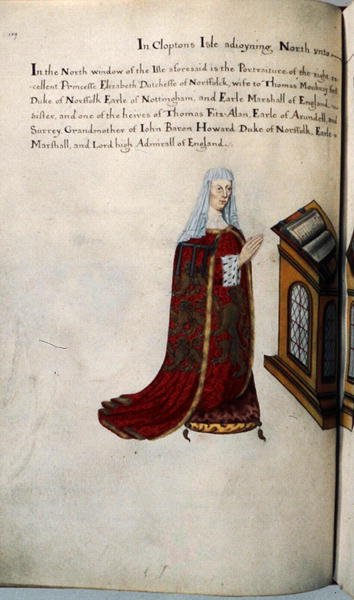 109
In Cloptons Isle adioyning, North unto
In the North window of the Isle aforesaid is the Portraiture of the right ex=
cellent Princesse Elizabeth Dutchesse of Norffolck, wife to Thomas Mowbray first
Duke of Norffolk Earle of Nottingham, and Earle Marshall of England.
Sister, and one of the heires of Thomas Fitz-Alan, Earle of Arundell, and
Surrey. Grandmother of Iohn Baron Howard Duke of Norffolk, Earle
Marshall, and Lord high Admirall of England.